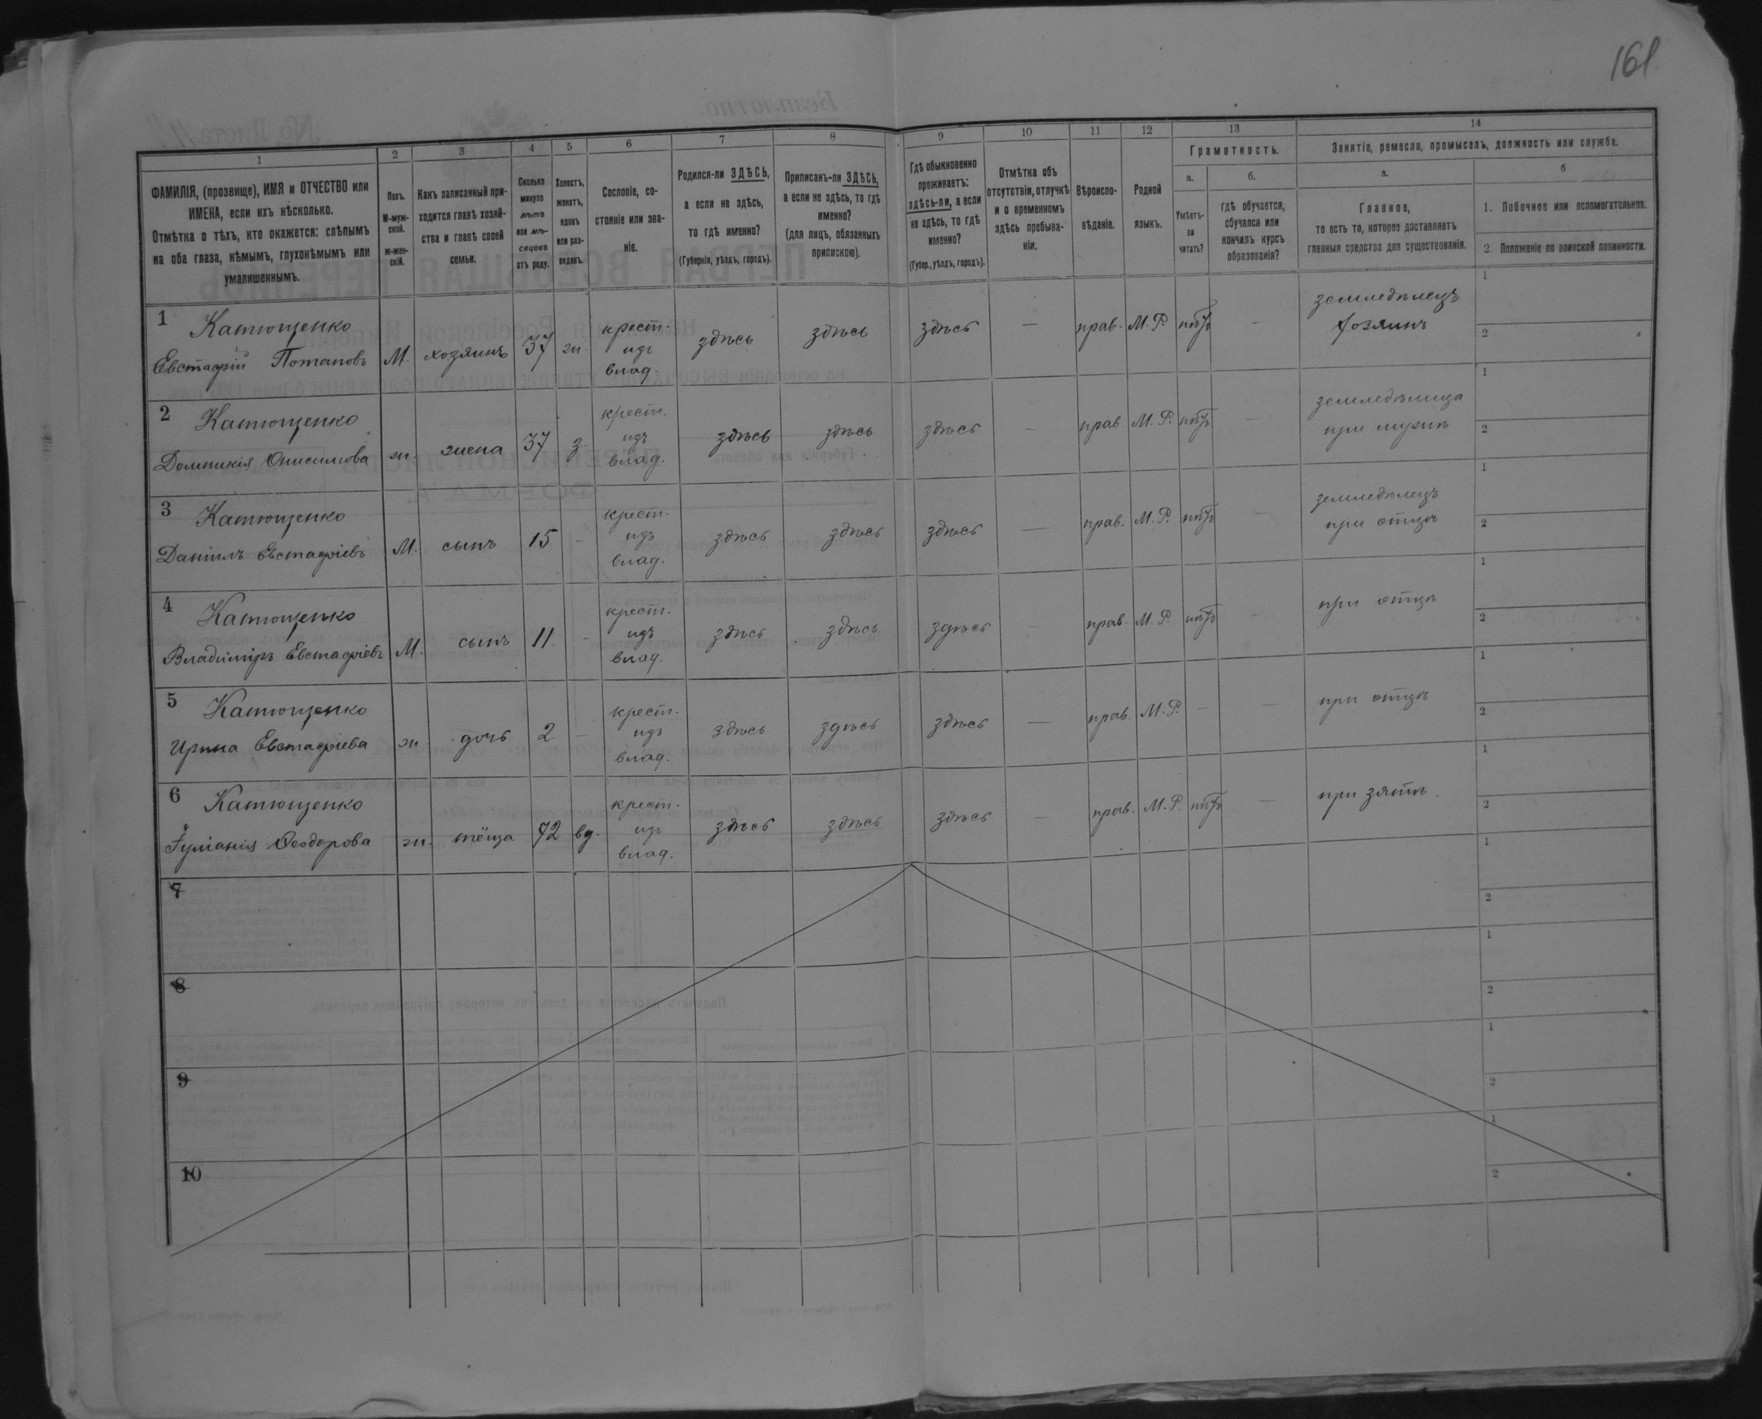 161
1 2 3 4 5 6 7 8 9 10 11 12 13 14
ФАМИЛІЯ, (прозвище), ИМЯ и ОТЧЕСТВО или
ИМЕНА, если ихъ нѣсколько.
Отмѣтка о тѣхъ, кто окажется: слѣпымъ
на оба глаза, нѣмымъ, глухонѣмымъ или
умалишеннымъ.
Полъ.
М-муж-
ской.
Ж-жен-
скій.
Какъ записанный при-
ходится главѣ хозяй-
ства и главѣ своей
семьи.
Сколько
минуло
лѣтъ
или мѣ-
сяцевъ
отъ роду.
Холостъ,
женатъ,
вдовъ
или раз-
веденъ.
Сословіе, со-
стояніе или зва-
ніе.
Родился-ли ЗДѢСЬ,
а если не здѣсь,
то гдѣ именно?
(Губернія, уѣздъ, городъ).
Приписанъ-ли ЗДѢСЬ,
а если не здѣсь, то гдѣ
именно?
(для лицъ, обязанныхъ
припискою).
Гдѣ обыкновенно
проживаетъ:
здѣсь-ли, а если
не здѣсь, то гдѣ
именно?
(Губер., уѣздъ, городъ).
Отмѣтка объ
отсутствіи, отлучкѣ
и о временномъ
здѣсь пребыва-
ніи.
Вѣроиспо-
вѣданіе.
Родной
языкъ.
Грамотность.
а.
Умѣетъ-
ли
читать?
б.
гдѣ обучается,
обучался или
кончилъ курсъ
образованія?
Занятіе, ремесло, промыселъ, должность или служба.
а.
Главное,
то есть то, которое доставляетъ
главныя средства для существованія.
б
1. Побочное или вспомогательное.
2. Положеніе по воинской повинности.
1 Катющенко
Евстафій Потаповъ М. хозяинъ 37 ж. крест. изъ влад. здѣсь здѣсь здѣсь — прав. М.Р. нѣтъ — земледѣлецъ хозяинъ 1 2
2 Катющенко
Домникія Онисимова ж. жена 37 з. крест. изъ влад. здѣсь здѣсь здѣсь — прав. М.Р. нѣтъ — земледѣлица при мужѣ 1 2
3 Катющенко
Даніилъ Евстафіевъ М. сынъ 15 - крест. изъ влад. здѣсь здѣсь здѣсь — прав. М.Р. нѣтъ — земледѣлецъ при отцѣ 1 2
4 Катющенко
Владиміръ Евстафіевъ М. сынъ 11 - крест. изъ влад. здѣсь здѣсь здѣсь — прав. М.Р. нѣтъ — при отцѣ 1 2
5 Катющенко
Ирина Евстафіева ж. дочь 2 - крест. изъ влад. здѣсь здѣсь здѣсь — прав. М.Р. — — при отцѣ 1 2
6 Катющенко
Ѳеодорова ж. тёща 72 вд. крест. изъ влад. здѣсь здѣсь здѣсь — прав. М.Р. нѣтъ — при зятѣ. 1 2
7 1 2
8 1 2
9 1 2
10 1 2